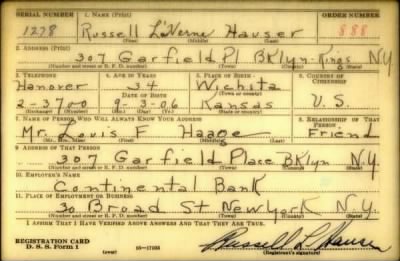 SERIAL NUMBER 1. NAME (Print) ORDER NUMBER
1228 Russell LaVerne Hauser 888
(First) (Middle) (Last)
2. ADDRESS (Print)
307 Garfield Pl BKlyn Kings N.Y.
(Number and street or R. F. D. number) (Town) (County) (State)
3. TELEPHONE 4. AGE IN YEARS 5. PLACE OF BIRTH 6. COUNTRY OF CITIZENSHIP
Hanover 34 Wichita
DATE OF BIRTH
2-3700 9-3-06 Kansas U.S.
7. NAME OF PERSON WHO WILL ALWAYS KNOW YOUR ADDRESS 8. RELATIONSHIP OF THAT PERSON
Mr. Louis F Haage Friend
(Mr., Mrs., Miss) (First) (Middle) (Last)
9. ADDRESS OF THAT PERSON
307 Garfield Place BKlyn N.Y.
(Number and street or R. F. D. number) (Town) (County) (State)
10. EMPLOYER'S NAME
Continental Bank
11. PLACE OF EMPLOYMENT OR BUSINESS
30 Broad St New York N.Y.
(Number and street or R. F. D. number) (Town) (County) (State)
I AFFIRM THAT I HAVE VERIFIED ABOVE ANSWERS AND THAT THEY ARE TRUE.
REGISTRATION CARD
D. S. S. Form 1 (over) 16—17105 Russell L Hauser
(Registrant's signature)